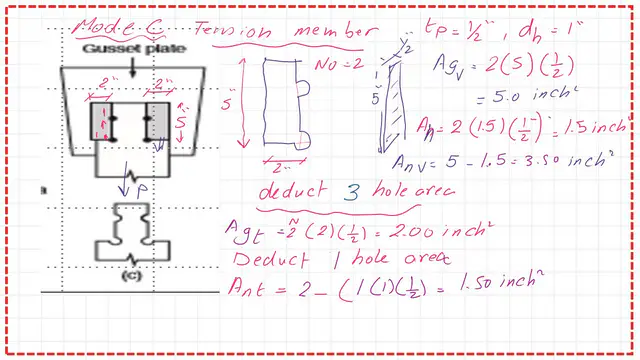 Mode C Tension member tp = 1/2" , dh = 1"
Gusset plate
2" 2"
5"
P
(c)
5" No=2
2"
1/2"
5"
Agv = 2(5)(1/2)
= 5.0 inch²
Ah = 2(1.5)(1/2) = 1.5 inch²
Anv = 5 - 1.5 = 3.50 inch²
deduct 3 hole area
Agt = 2(2)(1/2) = 2.00 inch²
Deduct 1 hole area
Ant = 2 - (1(1)(1/2) = 1.50 inch²